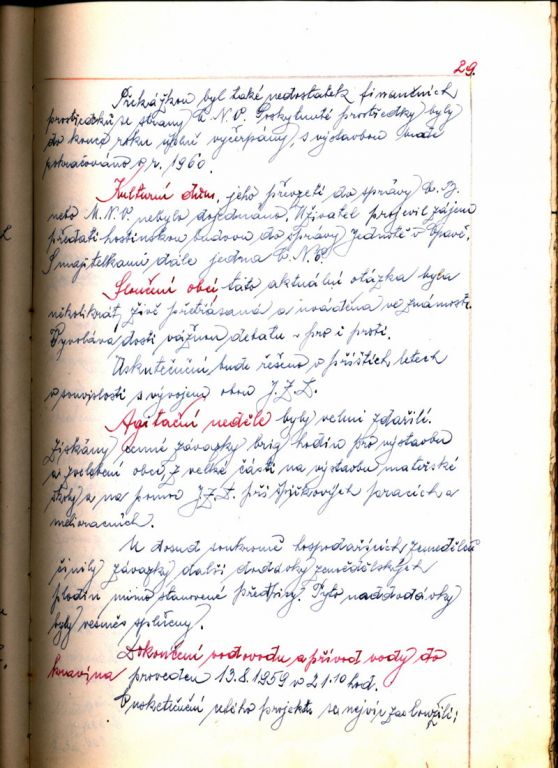 29.
Překážkou byl také nedostatek finančních
prostředků se strany O.N.V. Poskytnuté prostředky byly
do konce roku úplně vyčerpány, s výstavbou bude
pokračováno v r. 1960.
Kulturní dům, jeho převzetí do správy O.B.
nebo M.N.V. nebylo dojednáno. Uživatel projevil zájem
předati hostinskou budovu do správy Jednotě v Opavě.
S majitelkami dále jedná O.N.V.
Sloučení obcí tato aktuální otázka byla
několikrát, živě přetřásaná a uváděna ve známost.
Vyvolává dosti vážnou debatu - pro i proti.
Uskutečnění bude řešeno v příštích letech
v souvislosti s vývojem obou J.Z.D.
Agitační neděle byly velmi zdařilé.
Získány cenné závazky brig. hodin pro výstavbu
a zvelebení obce, z velké části na výstavbu mateřské
školy a na pomoc J.Z.D. při špičkových pracích a
melioracích.
U dosud soukromě hospodařících zemědělců
činily závazky další dodávky zemědělských
plodin mimo stanovené předpisy. Tyto naddodávky
byly vesměs splněny.
Dokončení vodovodu a přívod vody do
kravína proveden 13.8.1959 v 21.10 hod.
O uskutečnění celého projektu se nejvíce zasloužili: